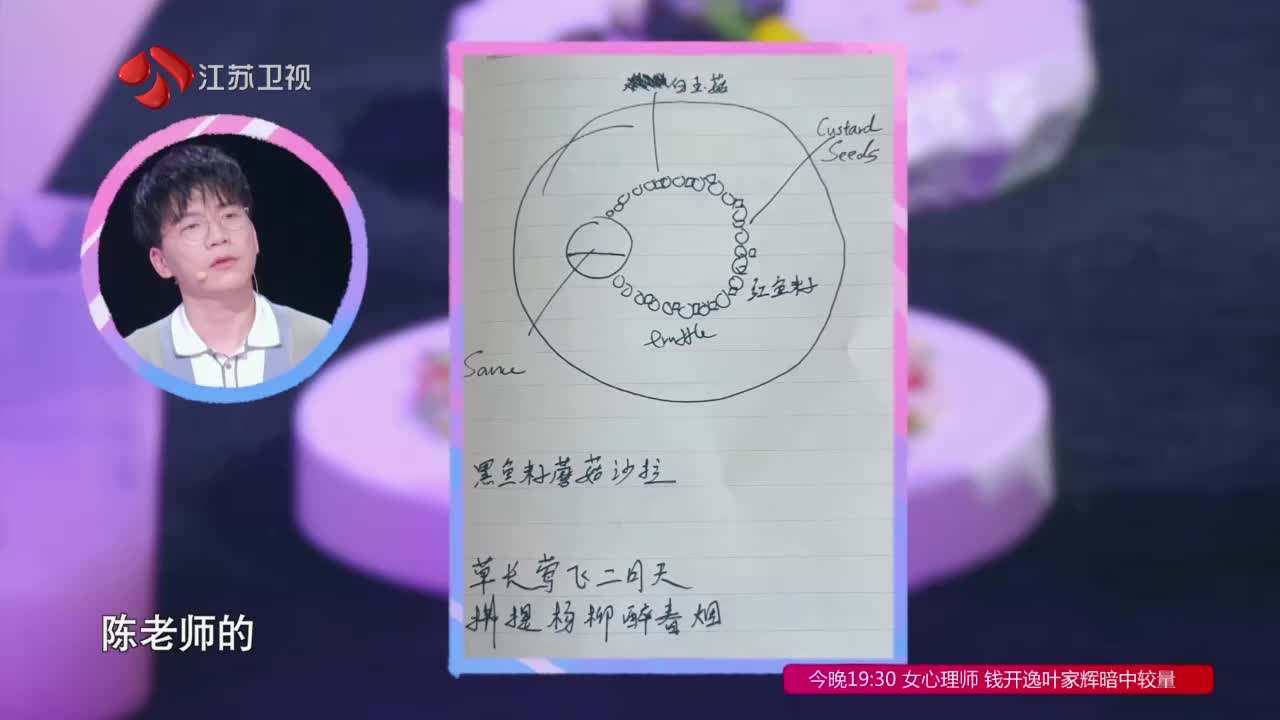 江苏卫视
白玉菇
Custard
Seeds
红鱼籽
Sauce
黑鱼籽蘑菇沙拉
草长莺飞二月天
拂提杨柳醉春烟
陈老师的
今晚19:30 女心理师 钱开逸叶家辉暗中较量